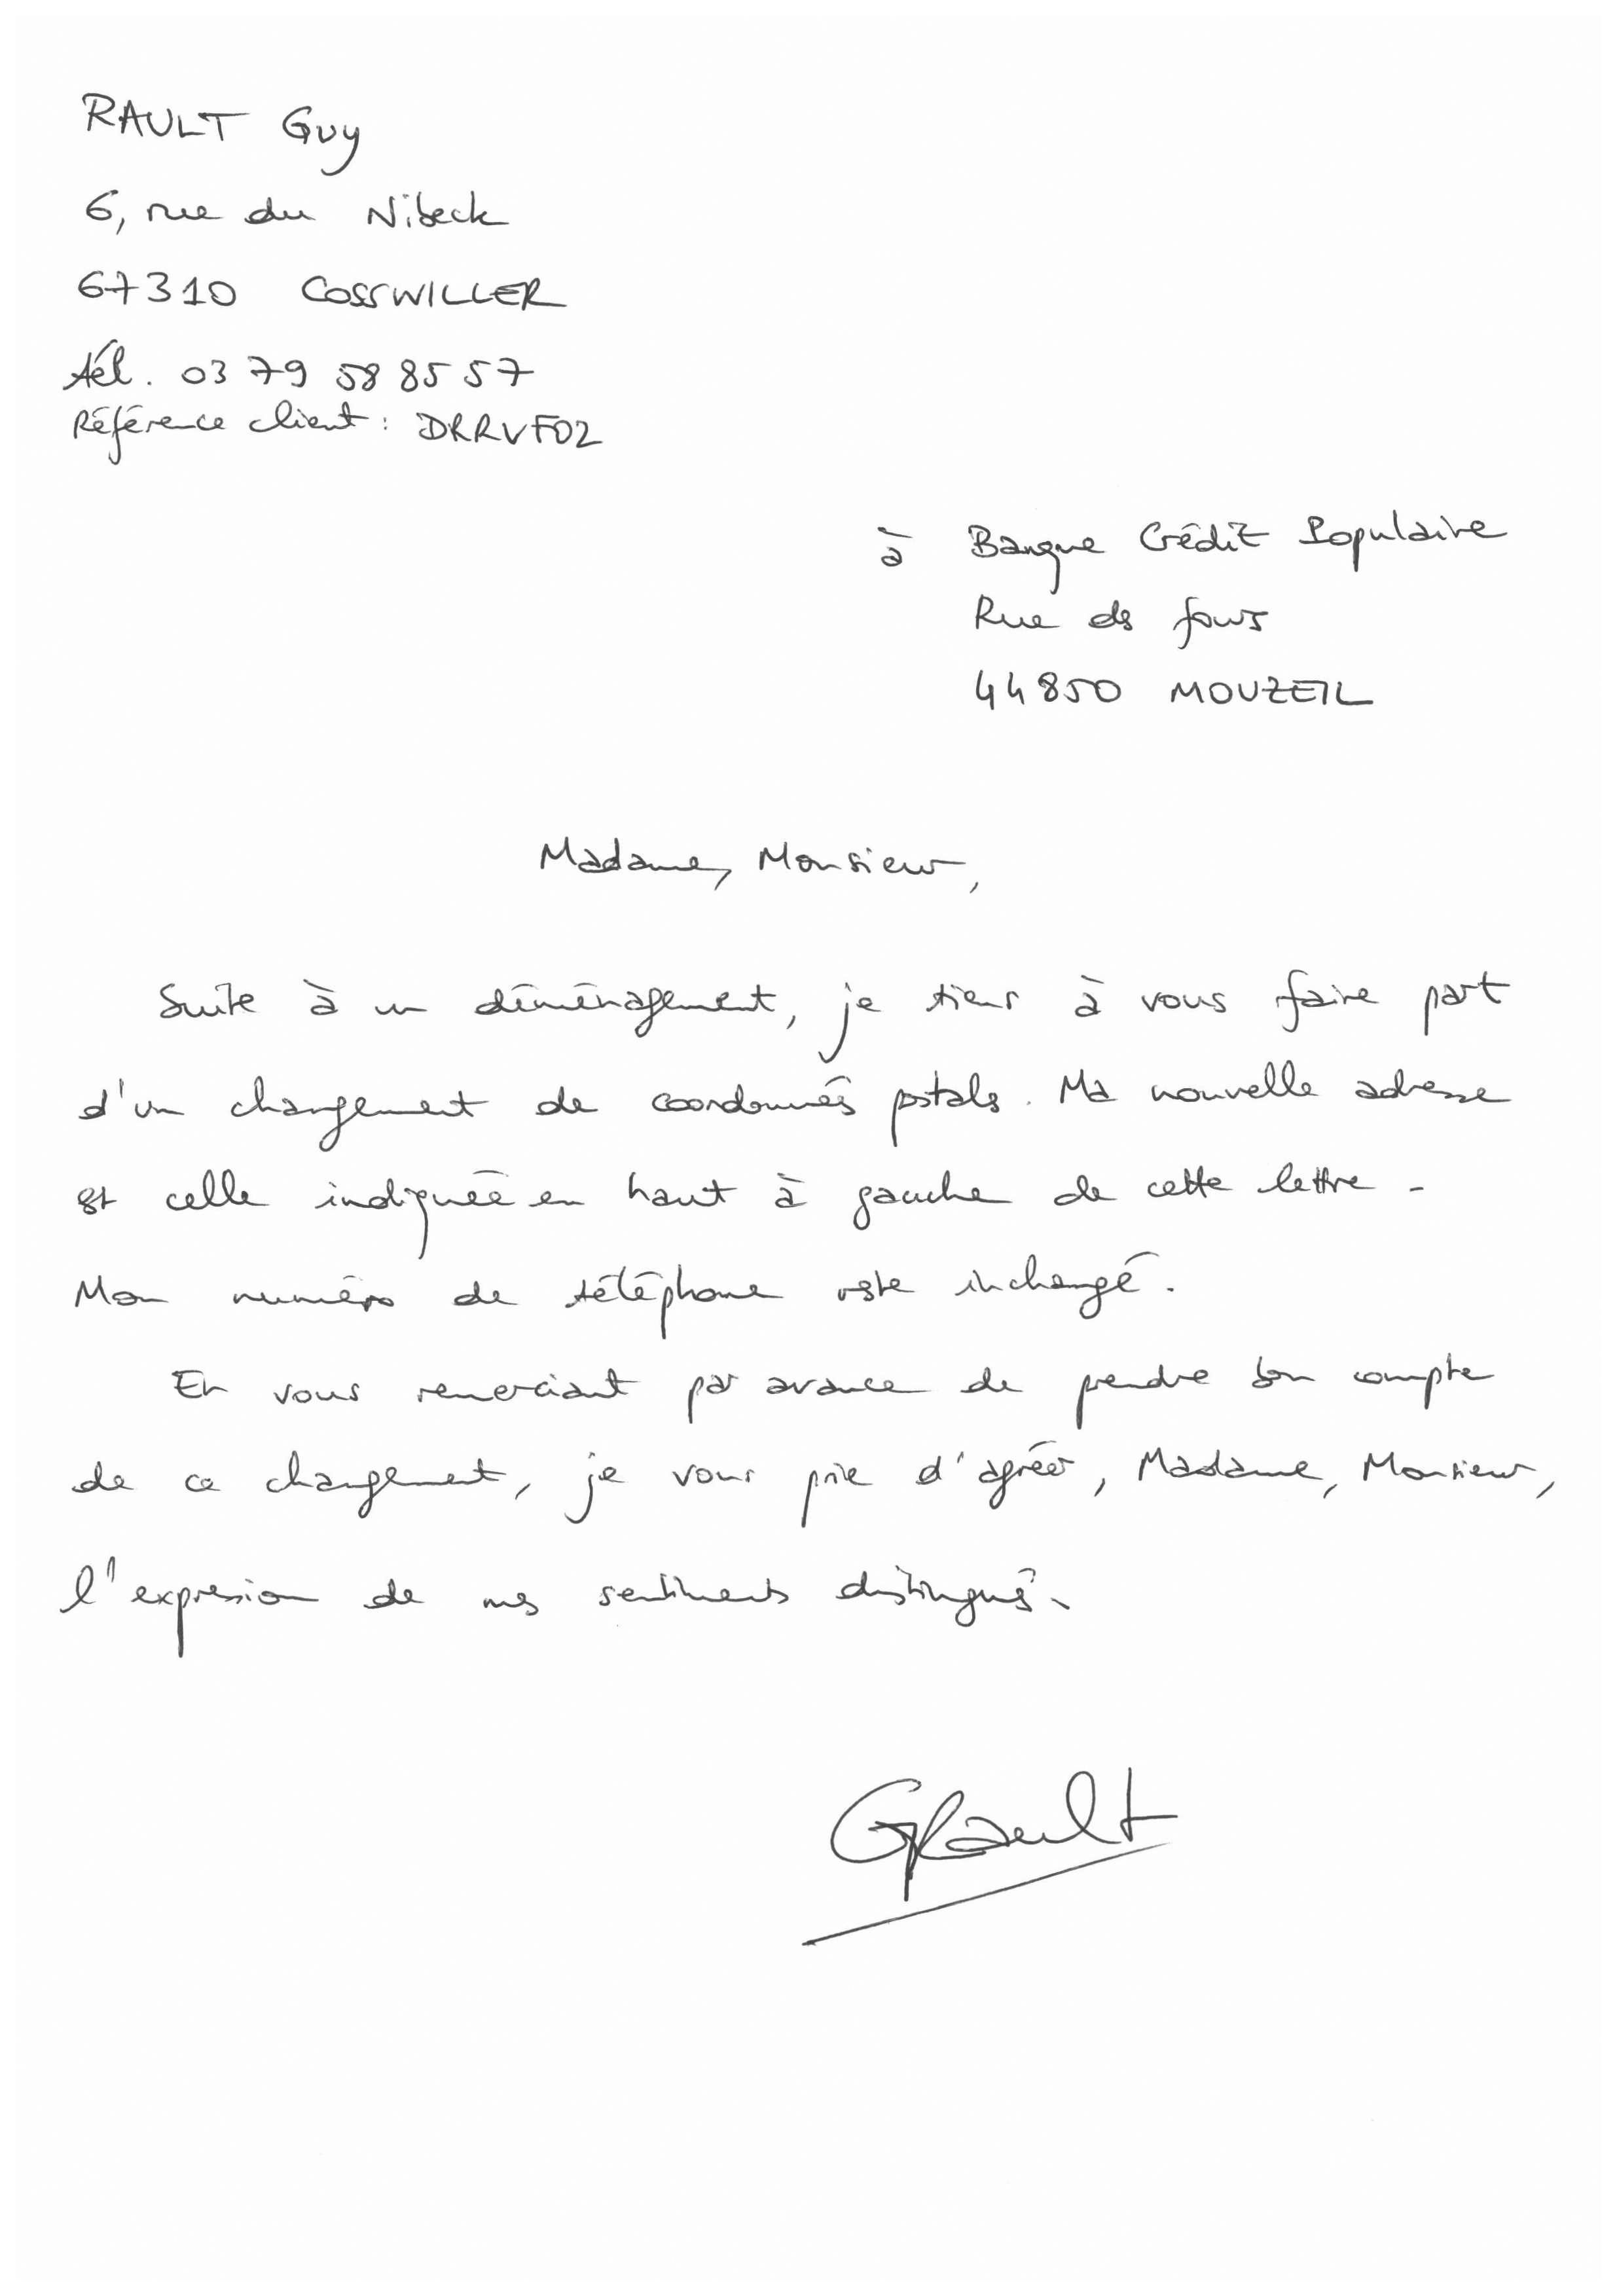 RAULT Guy
6, rue du Nibeck
67310 COSSWILLER
tél. 03 79 58 85 57
Référence client : DRRVF02
à Banque Crédit Populaire
Rue des fours
44850 MOUZEIL
Madame, Monsieur,
Suite à un déménagement, je tiens à vous faire part
d'un changement de coordonnées postales. Ma nouvelle adresse
est celle indiquée en haut à gauche de cette lettre.
Mon numéro de téléphone reste inchangé.
En vous remerciant par avance de prendre bon compte
de ce changement, je vous prie d'agréer, Madame, Monsieur,
l'expression de mes sentiments distingués.
GRault